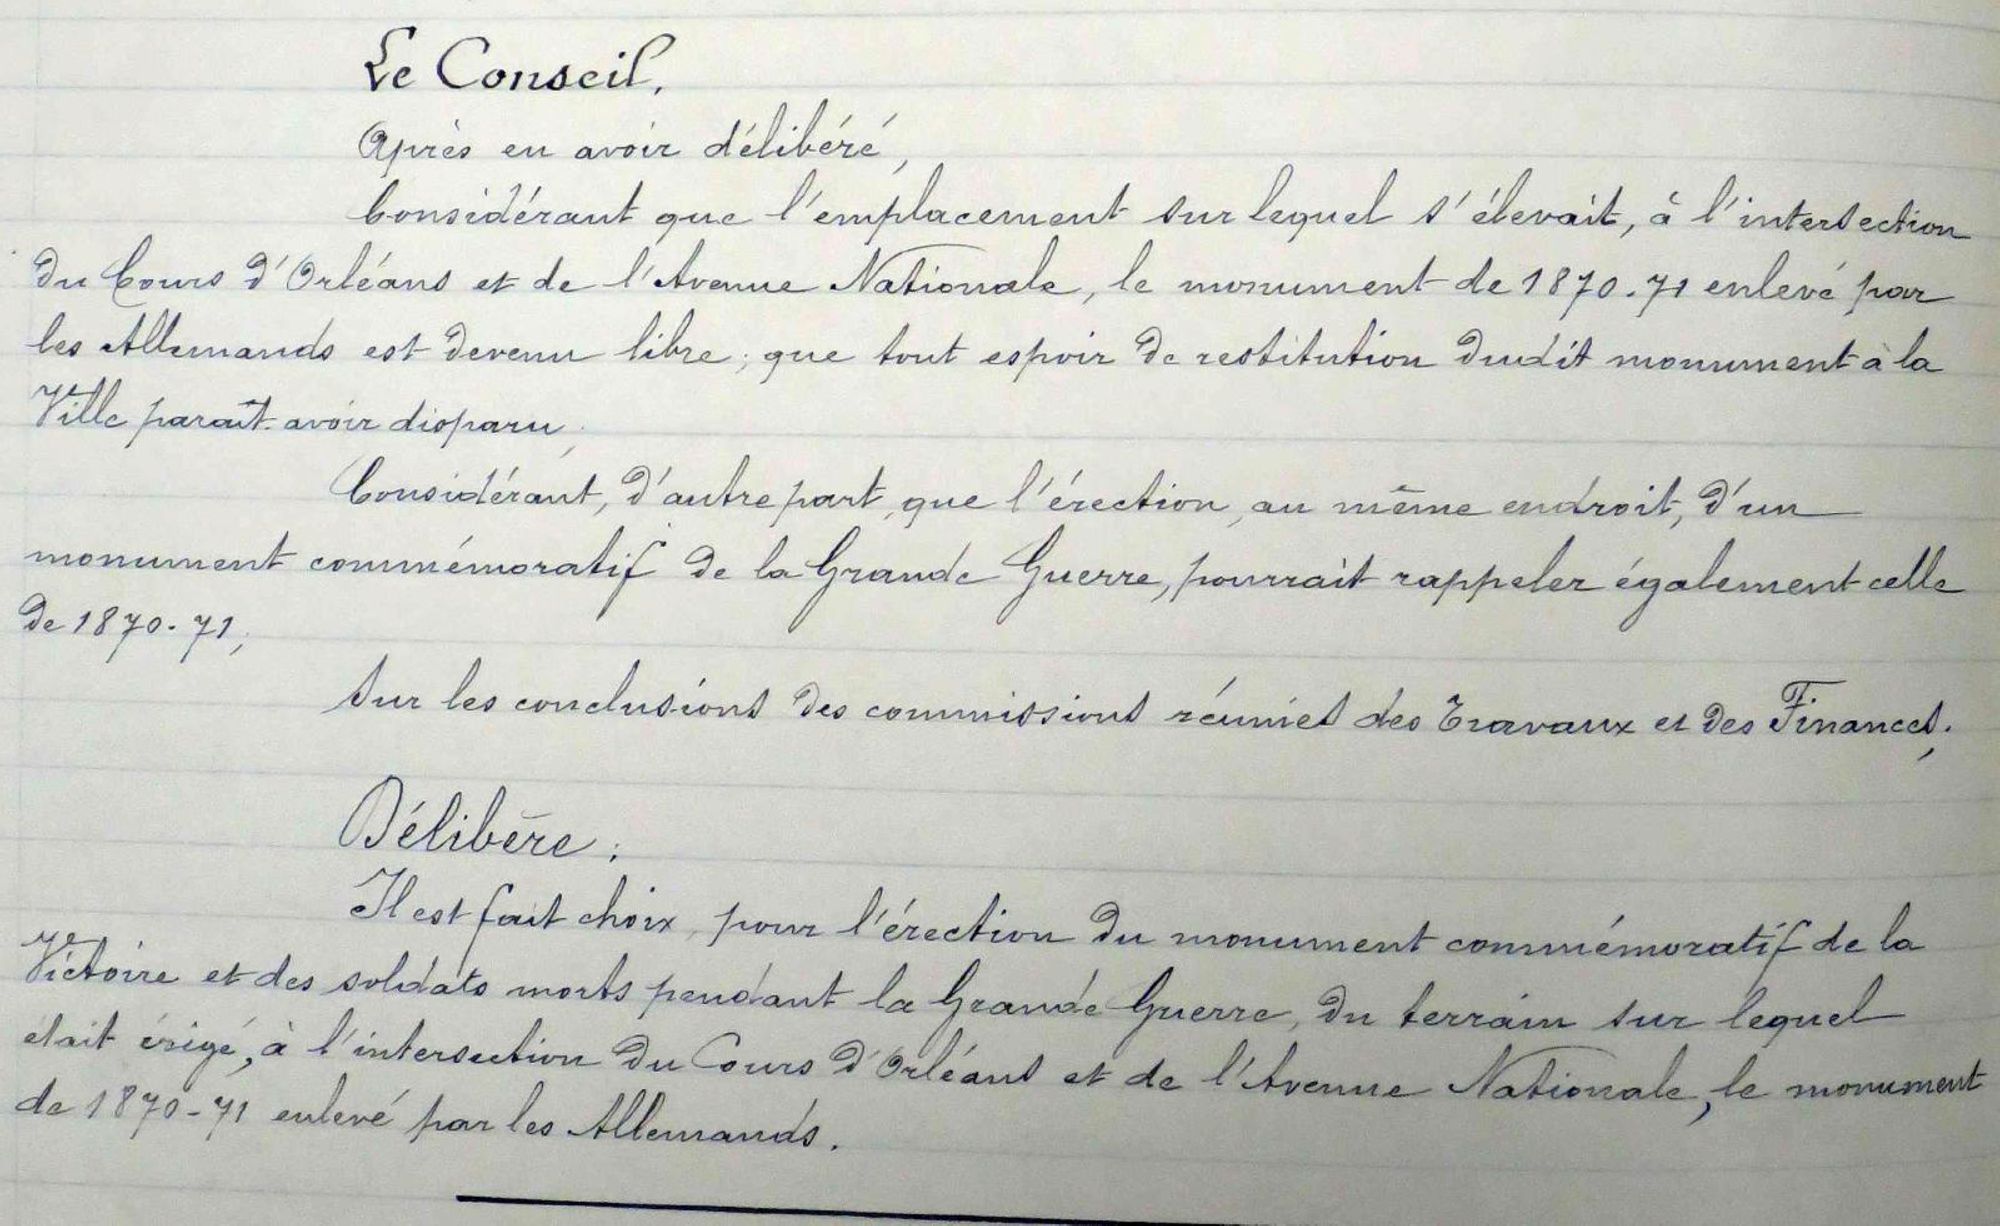 Le Conseil,
Après en avoir délibéré,
Considérant que l'emplacement sur lequel s'élevait, à l'intersection
du Cours d'Orléans et de l'Avenue Nationale, le monument de 1870-71 enlevé par
les Allemands est devenu libre; que tout espoir de restitution dudit monument à la
Ville paraît avoir disparu;
Considérant, d'autre part, que l'érection, au même endroit, d'un
monument commémoratif de la Grande Guerre, pourrait rappeler également celle
de 1870-71;
Sur les conclusions des commissions réunies des Travaux et des Finances;
Délibère:
Il est fait choix, pour l'érection du monument commémoratif de la
Victoire et des soldats morts pendant la Grande Guerre, du terrain sur lequel
était érigé, à l'intersection du Cours d'Orléans et de l'Avenue Nationale, le monument
de 1870-71 enlevé par les Allemands.